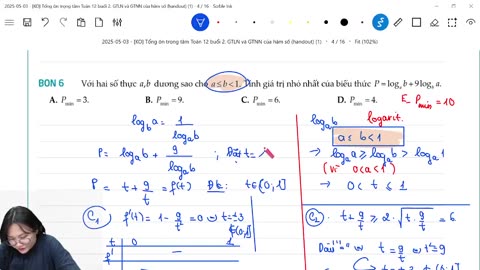 2025-05-03 - [KO] Tổng ôn trọng tâm Toán 12 buổi 2: GTLN và GTNN của hàm số (handout) (1) • 4 / 16 • Scrble Ink
2025-05-03 - [KO] Tổng ôn trọng tâm Toán 12 buổi 2: GTLN và GTNN của hàm số (handout) (1) • 4 / 16 • Fit (102%)
BON 6 Với hai số thực a,b dương sao cho a ≤ b < 1. Tính giá trị nhỏ nhất của biểu thức P = log_a b + 9 log_b a.
A. P_min = 3. B. P_min = 9. C. P_min = 6. D. P_min = 4. E. P_min = 10
log_b a = 1 / log_a b
P = log_a b + 9 / log_a b ; Đặt t =
P = t + 9/t = f(t) Đk: t ∈ (0;1]
C1 f'(t) = 1 - 9/t² = 0 ⇔ t = ±3 ∉ (0;1]
t 0 1
f' −
log_a b logarit.
a ≤ b < 1
→ log_a a ≥ log_a b > log_a 1
(Vì 0<a<1)
→ 0 < t ≤ 1
C2 t + 9/t ≥ 2·√(t·9/t) = 6
Dấu "=" ⇔ t = 9/t ⇔ t² = 9